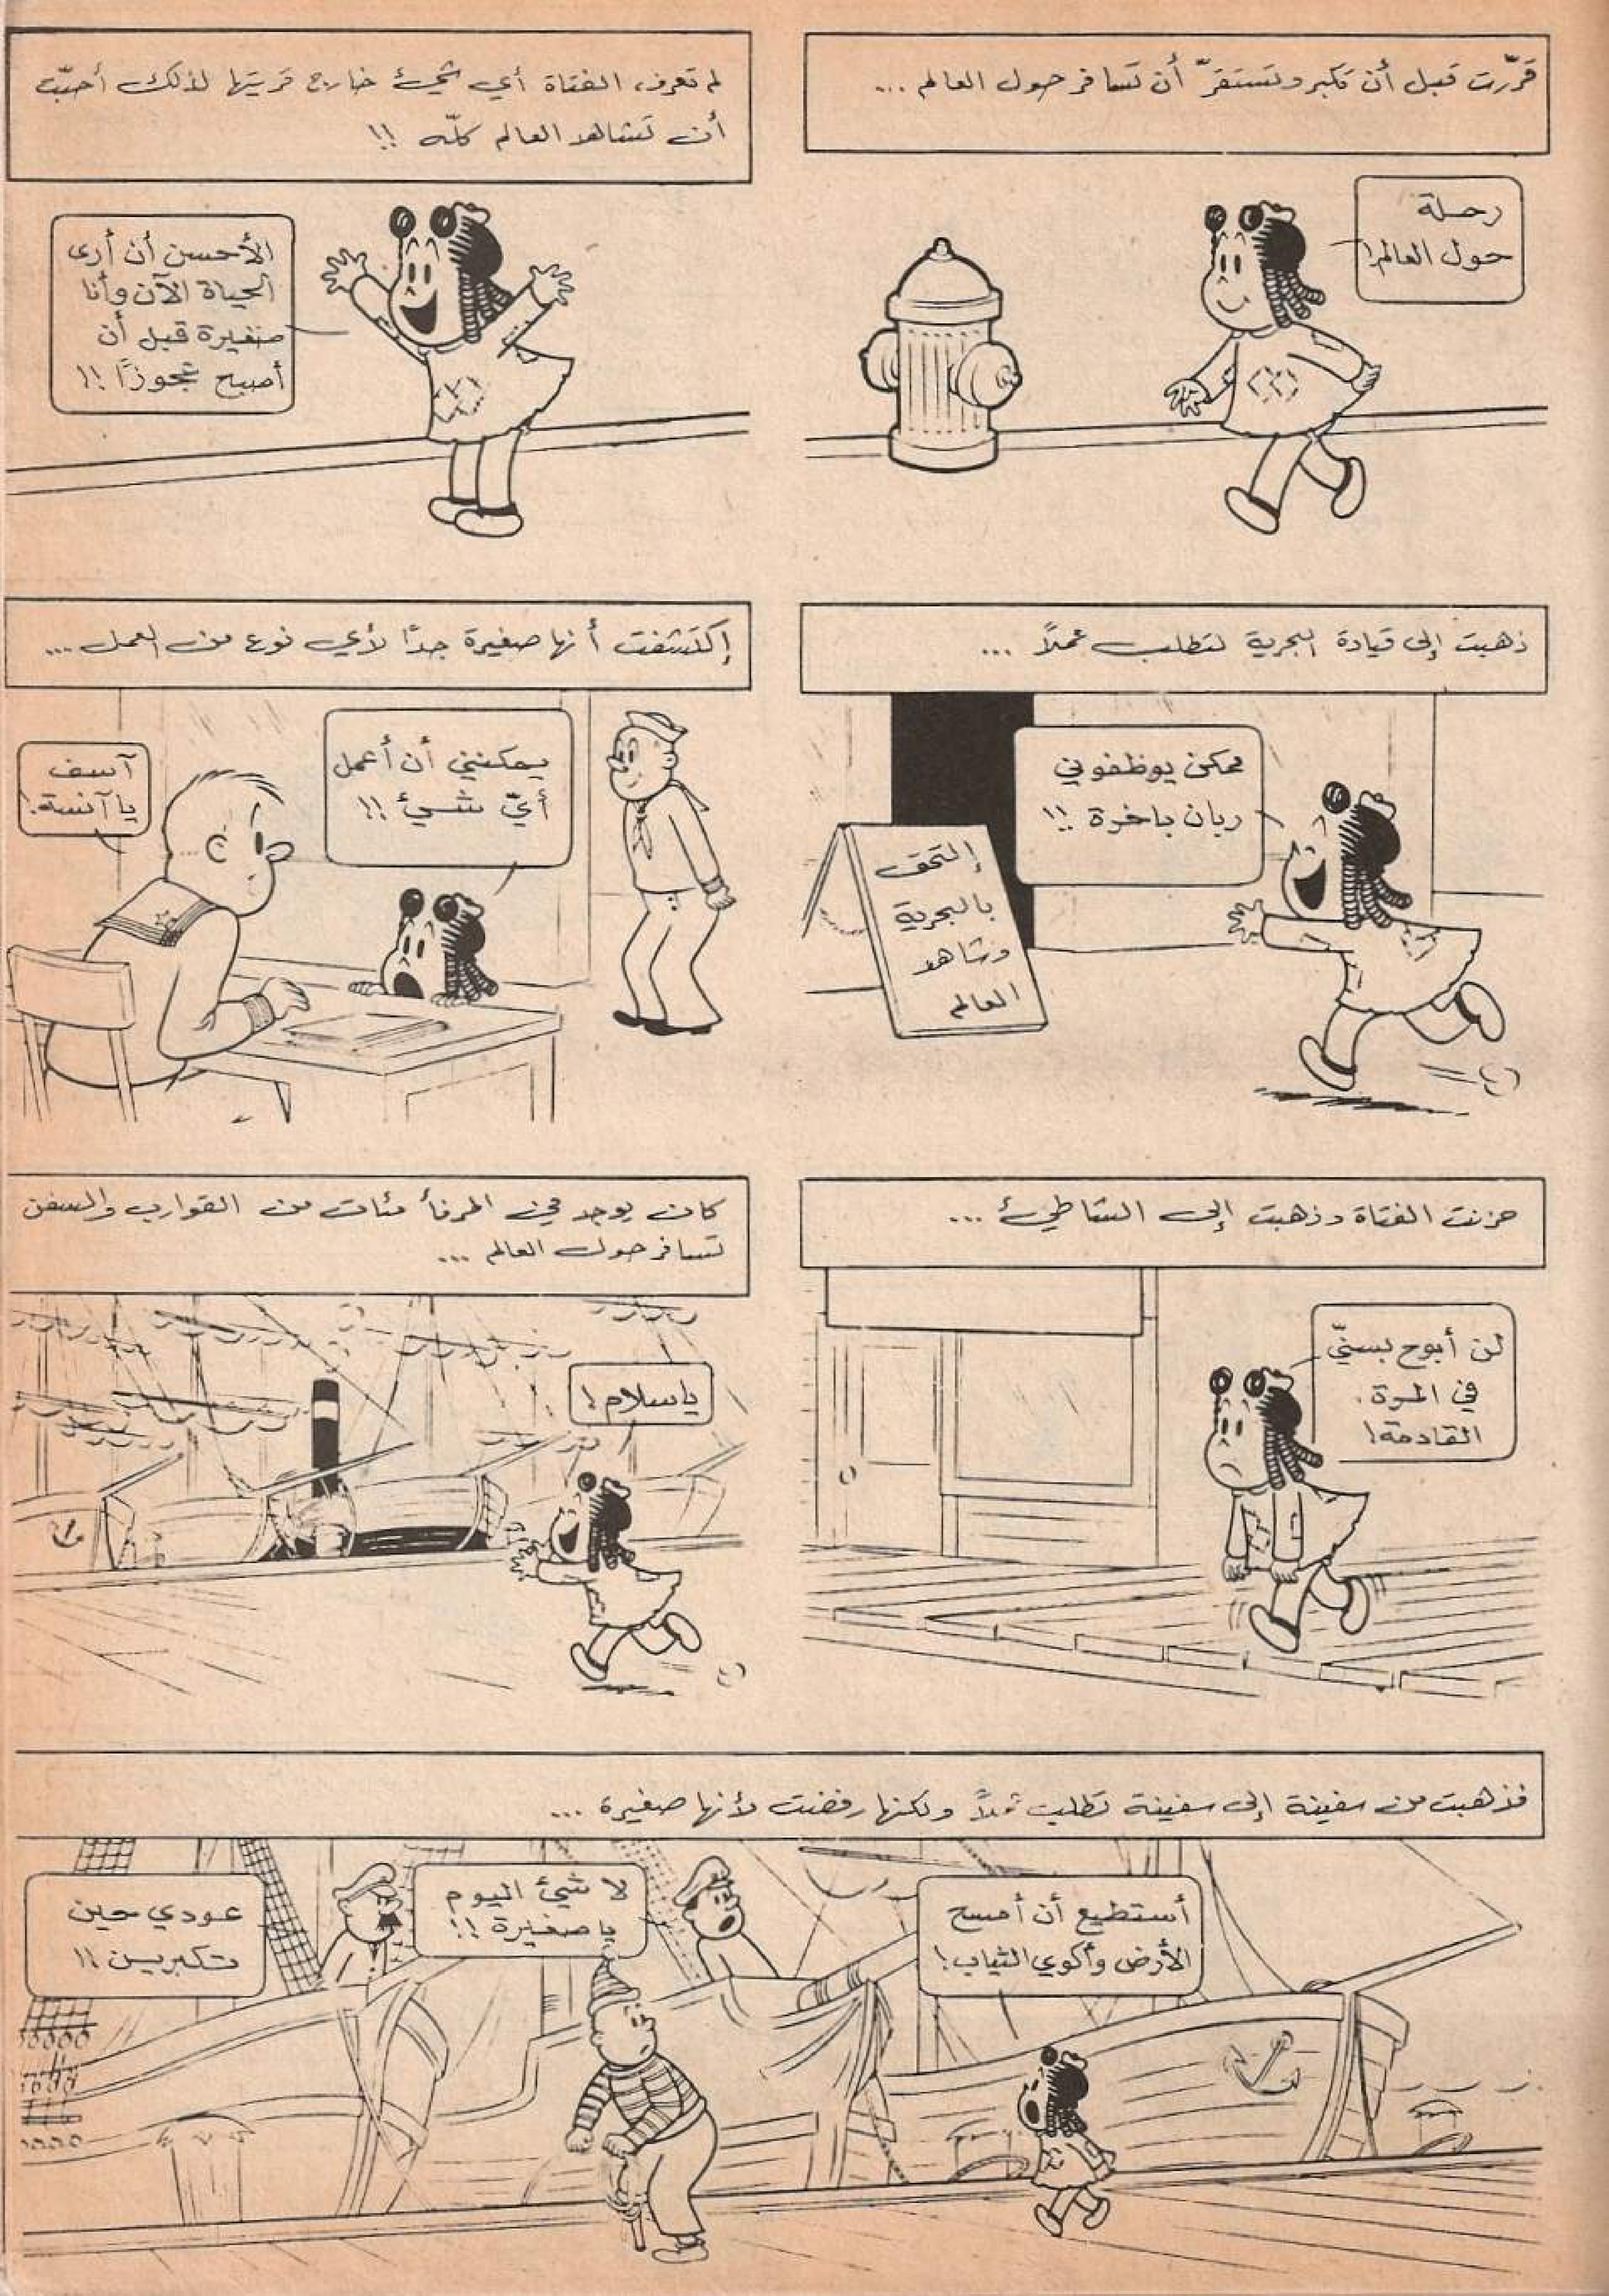 قرّرت قبل أن تكبر وتستقرّ أن تسافر حول العالم ...
رحلة
حول العالم!
لم تعرف الفتاة أي شيئ خارج قريتها لذلك أحبّت
أن تشاهد العالم كلّه !!
الأحسن أن أرى
الحياة الآن وأنا
صغيرة قبل أن
أصبح عجوزًا !!
ذهبت إلى قيادة البحرية لتطلب عملاً ...
ممكن يوظفوني
ربان باخرة !!
إلتحق
بالبحرية
وشاهد
العالم
إكتشفت أنها صغيرة جدًا لأي نوع من العمل ...
يمكنني أن أعمل
أيّ شيئ !!
آسف
يا آنسة!
حزنت الفتاة وذهبت إلى الشاطئ ...
لن أبوح بسنّي
في المرة
القادمة!
كان يوجد في المرفأ مئات من القوارب والسفن
تسافر حول العالم ...
ياسلام!
فذهبت من سفينة إلى سفينة تطلب عملاً ولكنها رفضت لأنها صغيرة ...
أستطيع أن أمسح
الأرض وأكوي الثياب!
لا شيئ اليوم
يا صغيرة !!
عودي حين
تكبرين !!